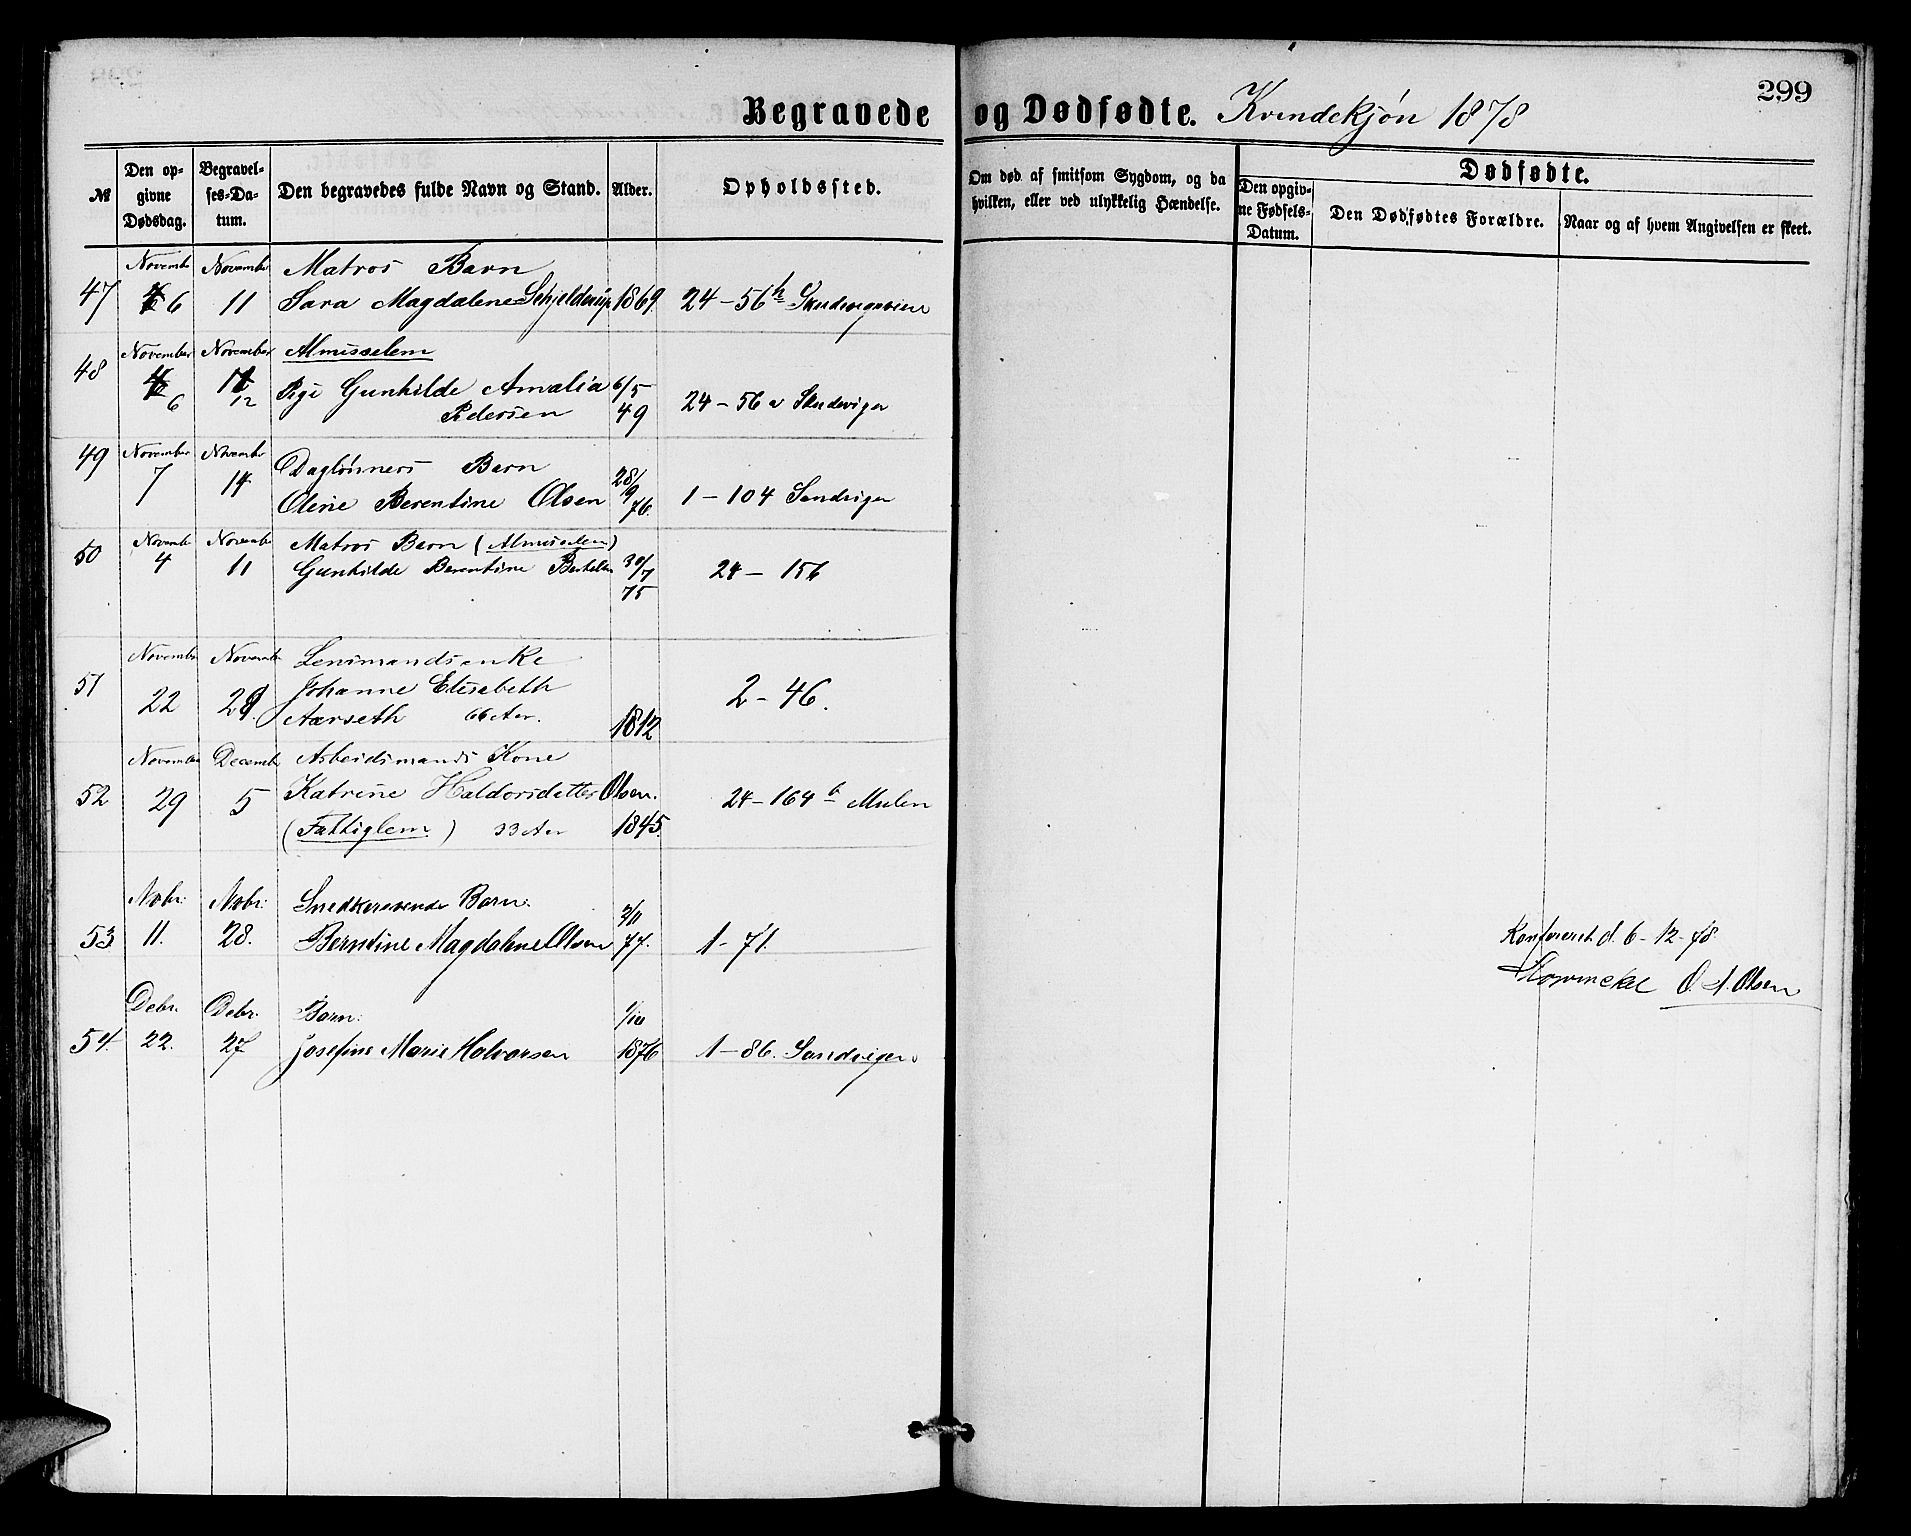 Begravede og Dødfødte. Kvindekjøn 1878
299
№
Den opgivne Dødsdag.
Begravelses-Datum.
Den begravedes fulde Navn og Stand.
Alder.
Opholdssted.
Om død af smitsom Sygdom, og da hvilken, eller ved ulykkelig Hændelse.
Dødfødte.
Den opgivne Fødsels-Datum.
Den Dødfødtes Forældre.
Naar og af hvem Angivelsen er skeet.
Novembr Novembr Matros Barn
47 6 11 Sara Magdalene Schjelderup 1869. 24-56 h
November November Almisselem
48 6 12 Pige Gunhilde Amalia 6/5
Pedersen 49 24-56 a Skudeviger
49 November Novembr Daglönners Barn 28/9
7 14 Oline Berentine Olsen 76. 1-104 Sandvigen
50 Novembr Novembr Matros Barn (Almisselem)
4 11 Gunhilde Berentine 30/7 75 24-156
Novembr Novembr Lensmandsenke
51 22 Johanne Elisabeth 2-46.
Aarseth 66 Aar. 1812
November Decembr Arbeidsmands Kone
52 29 5 Katrine Haldorsdetter Olsen. 24-164 b Mulen
(Fattiglem) 33 Aar 1845.
Nobr: Nobr: Snedkersvends Barn: 2/11
53 11. 28. Berntine Magdalene Olsen 77. 1-71.
Konfereret d. 6-12-78.
O. A. Olsen
Debr. Debr. Barn: 1/10
54. 22. 27 Josefine Marie Halvorsen 1876 1-86. Sandvigen.